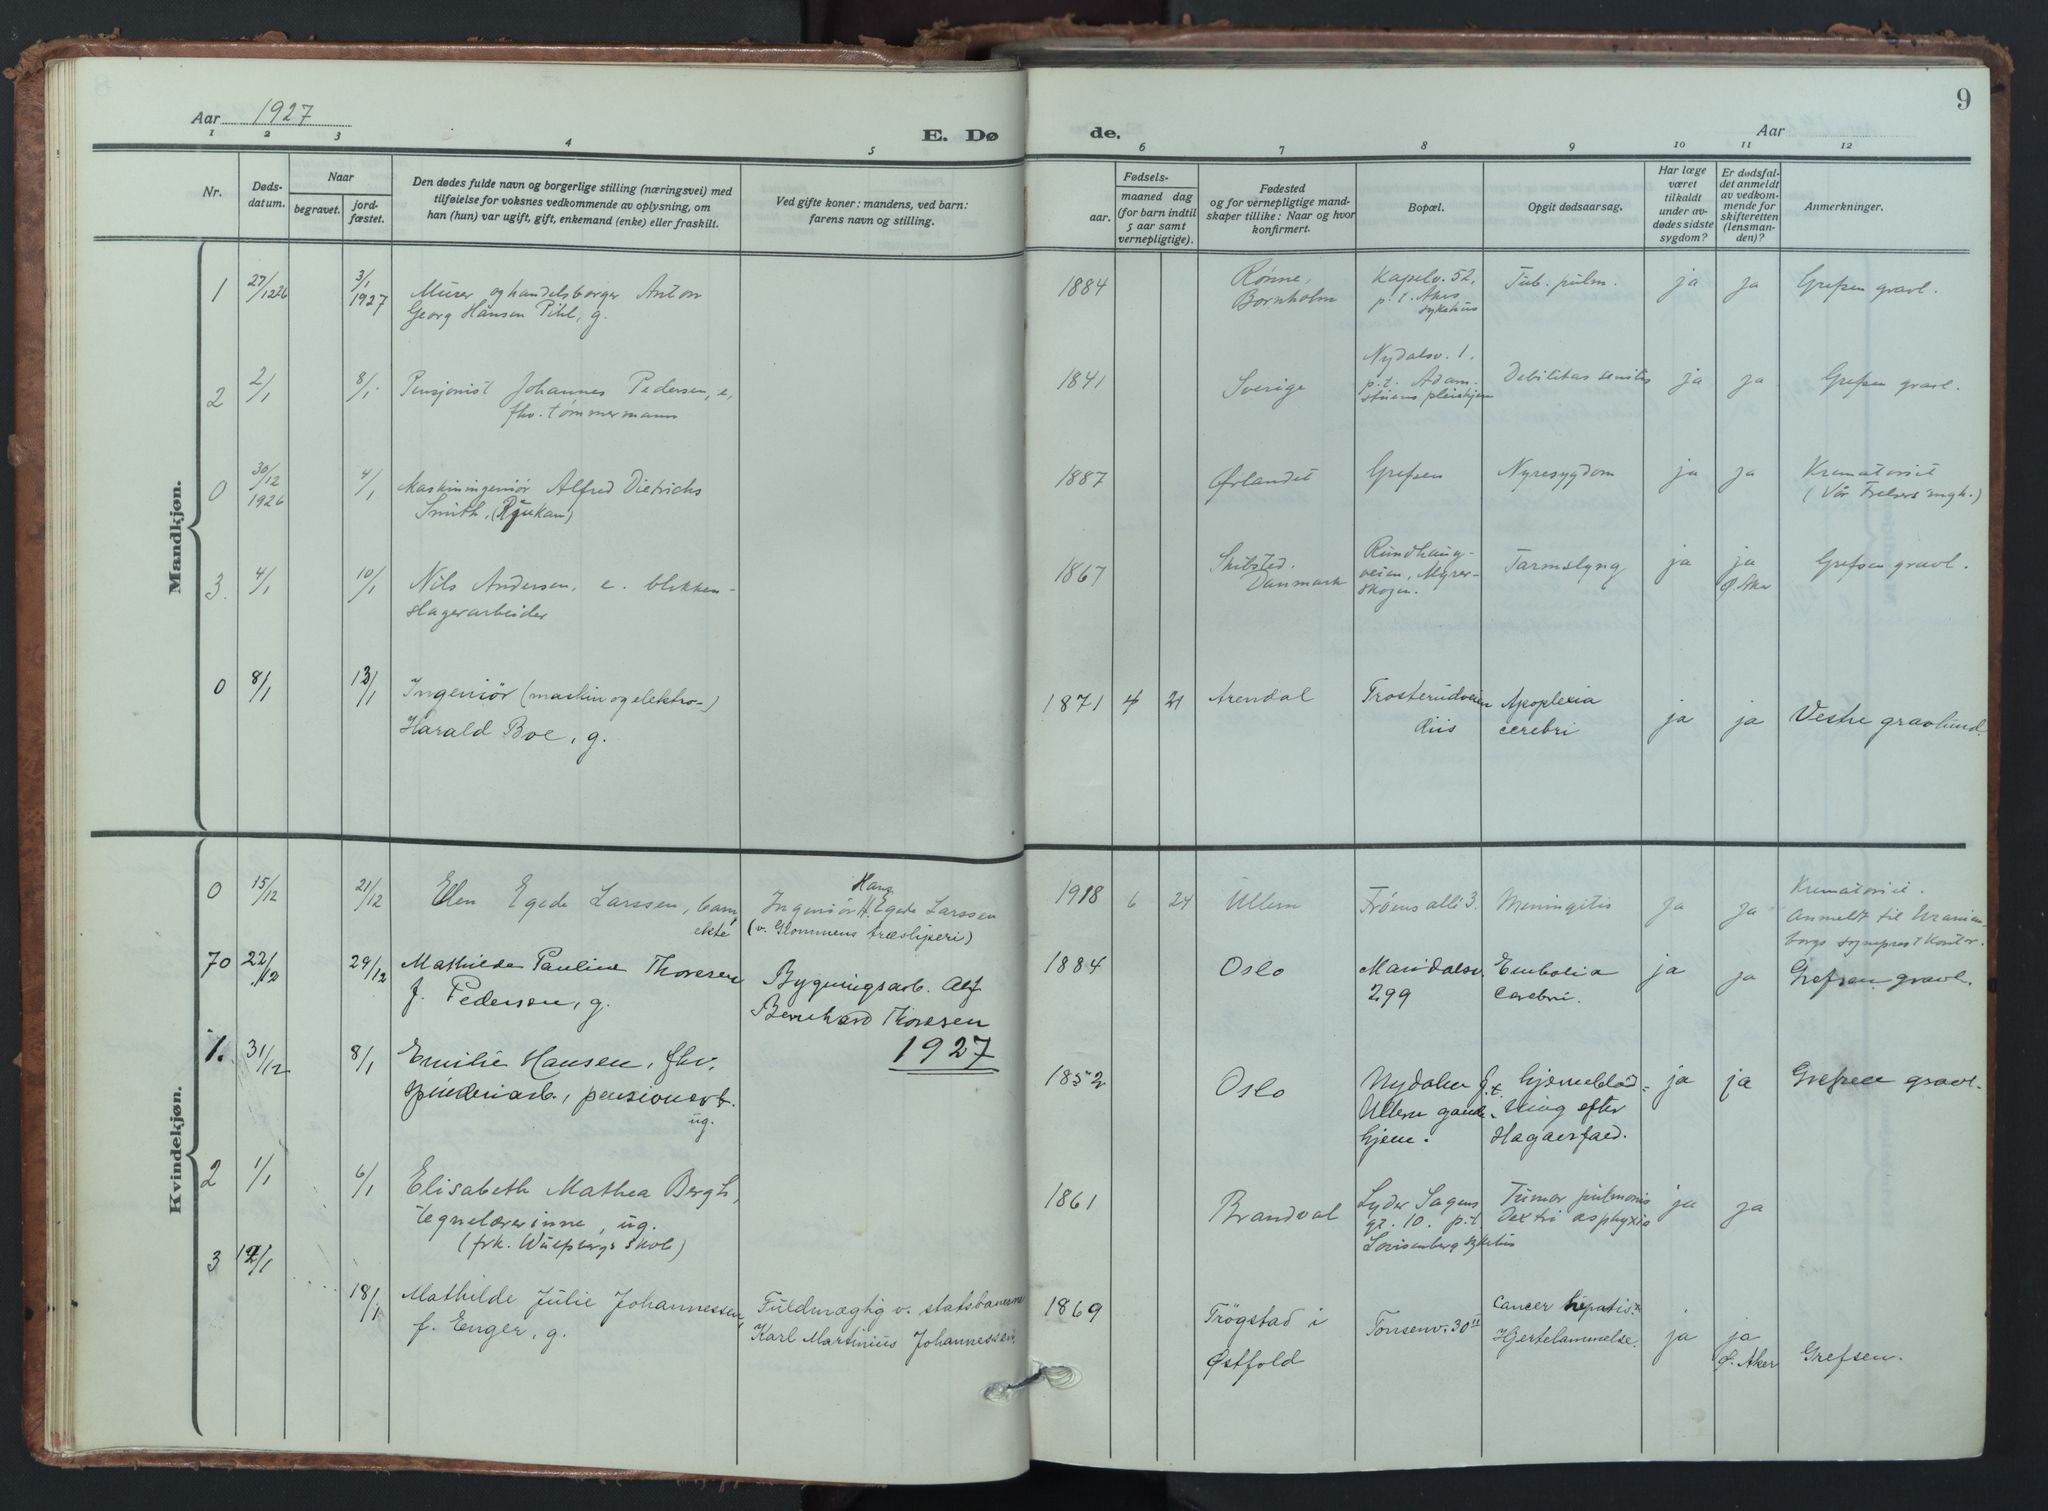 Aar 1927
E. Dø
de.
Aar
9
1 2 3 4 5 6 7 8 9 10 11 12
Nr.
Døds-
datum.
Naar
begravet.
jord-
fæstet.
Den dødes fulde navn og borgerlige stilling (næringsvei) med
tilføielse for voksnes vedkommende av oplysning, om
han (hun) var ugift, gift, enkemand (enke) eller fraskilt.
Ved gifte koner: mandens, ved barn:
farens navn og stilling.
Fødsels-
aar.
maaned dag
(for barn indtil
5 aar samt
vernepligtige).
Fødested
og for vernepligtige mand-
skaper tillike: Naar og hvor
konfirmert.
Bopæl.
Opgit dødsaarsag.
Har læge
været
tilkaldt
under av-
dødes sidste
sygdom?
Er dødsfal-
det anmeldt
av vedkom-
mende for
skifteretten
(lensman-
den)?
Anmerkninger.
Mandkjøn.
1
27/12 26
3/1
1927
Murer og handelsborger Anton
Georg Hansen Pihl, g.
1884
Rønne,
Bornholm
Kapelv. 52,
p. t. Akers
sykehus
Tub. pulm.
ja
ja
Grefsen gravl.
2
2/1
8/1
Pensjonist Johannes Pedersen, e,
fhv. tømmermann
1841
Sverige
Nydalsv. 1.
p. t. Adam-
stuens pleiehjem
Debilitas senilis
ja
ja
Grefsen gravl.
0
30/12
1926
4/1
Maskiningeniør Alfred Dietrichs
Smith, (Rjukan)
1887
Ørlandet
Grefsen
Nyresygdom
ja
ja
Krematoriet
(Vår Frelsers
3.
4/1
10/1
Nils Andersen, e. blikken-
slagerarbeider
1867
Skibsted.
Danmark
Rundhaug-
veien, Myrer-
skogen.
Tarmslyng
ja
ja
Ø. Aker
Grefsen gravl.
0
8/1
13/1
Ingeniør (maskin og elektro-)
Harald Boe, g.
1871 4 21
Arendal
Trosterudveien
Riis
Apoplexia
cerebri
ja
ja
Vestre gravlund.
Kvindekjøn.
0
15/12
21/12
Ellen Egede Larssen, barn,
ekte
Hans
Ingeniør H. Egede Larssen
(v. Glommens træsliperi)
1918 6 24
Ullern
Frøens allé 3.
Meningitis
ja
ja
Krematoriet.
Anmeldt til Uranien-
borgs sogneprest kontor.
70
22/12
29/12
Mathilde Pauline Thoresen
f. Pedersen, g.
Bygningsarb. Alf
Bernhard Thoresen
1884
Oslo
Maridalsv.
299
Embolia
Cerebri.
ja
ja
Grefsen gravl.
1927
1.
31/12
8/1
Emilie Hansen, fhv.
spinneriarb., pensionert.
ug.
1852
Oslo
Nydalen G. t.
Ullern gamle-
hjem.
Hjerneblød-
ning efter
ja
ja
Grefsen gravl.
2
1/1
6/1
Elisabeth Mathea Bergh,
tegnelærerinne, ug.
(frk. Wulfsbergs skole)
1861
Brandval
Lyder Sagens
gt. 10. p.t.
Lovisenberg sykehus
Tumor pulmonis
Dextri asphyxis
ja
ja
3
12/1
18/1
Mathilde Julie Johannessen,
f. Enger, g.
Fuldmægtig v. statsbanerne
Karl Martinius Johannessen.
1869
Trøgstad i
Østfold
Tonsenv. 30 II
Cancer hepatis.
Hjertelammelse.
ja
ja
Ø. Aker
Grefsen.